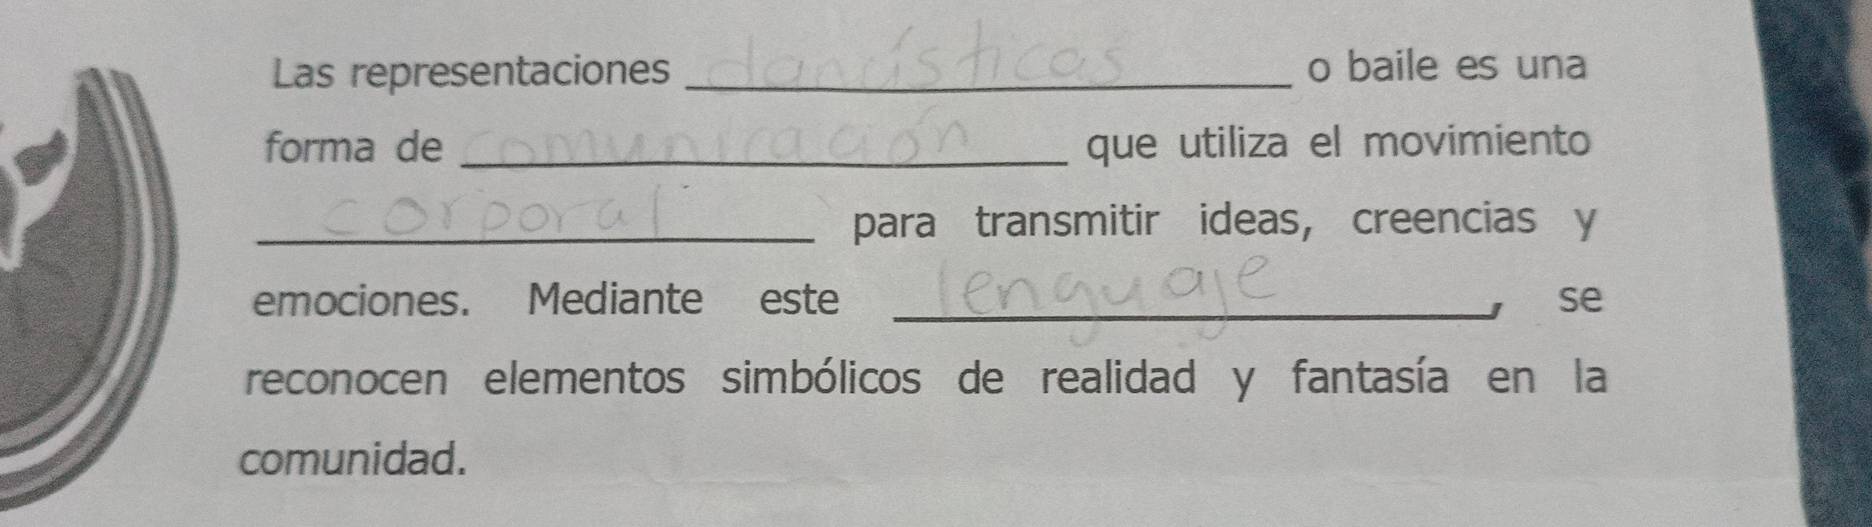 Las representaciones dancísticas o baile es una
forma de comunicación que utiliza el movimiento
corporal para transmitir ideas, creencias y
emociones. Mediante este lenguaje, se
reconocen elementos simbólicos de realidad y fantasía en la
comunidad.